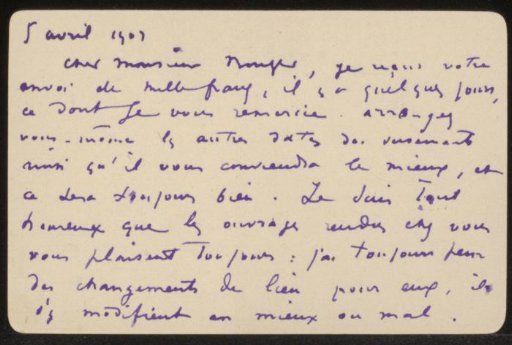 5 avril 1907
Cher Monsieur Rouger, je reçus votre
envoi de mille francs, il y a quelques jours,
ce dont je vous remercie. arrangez
vous-même les autres dates des versements
ainsi qu'il vous conviendra le mieux, et
ce sera toujours bien. Je suis tout
heureux que les ouvrages rendus chez vous
vous plaisent toujours : j'ai toujours peur
des changements de lieu pour eux, ils
s'y modifient en mieux ou mal.